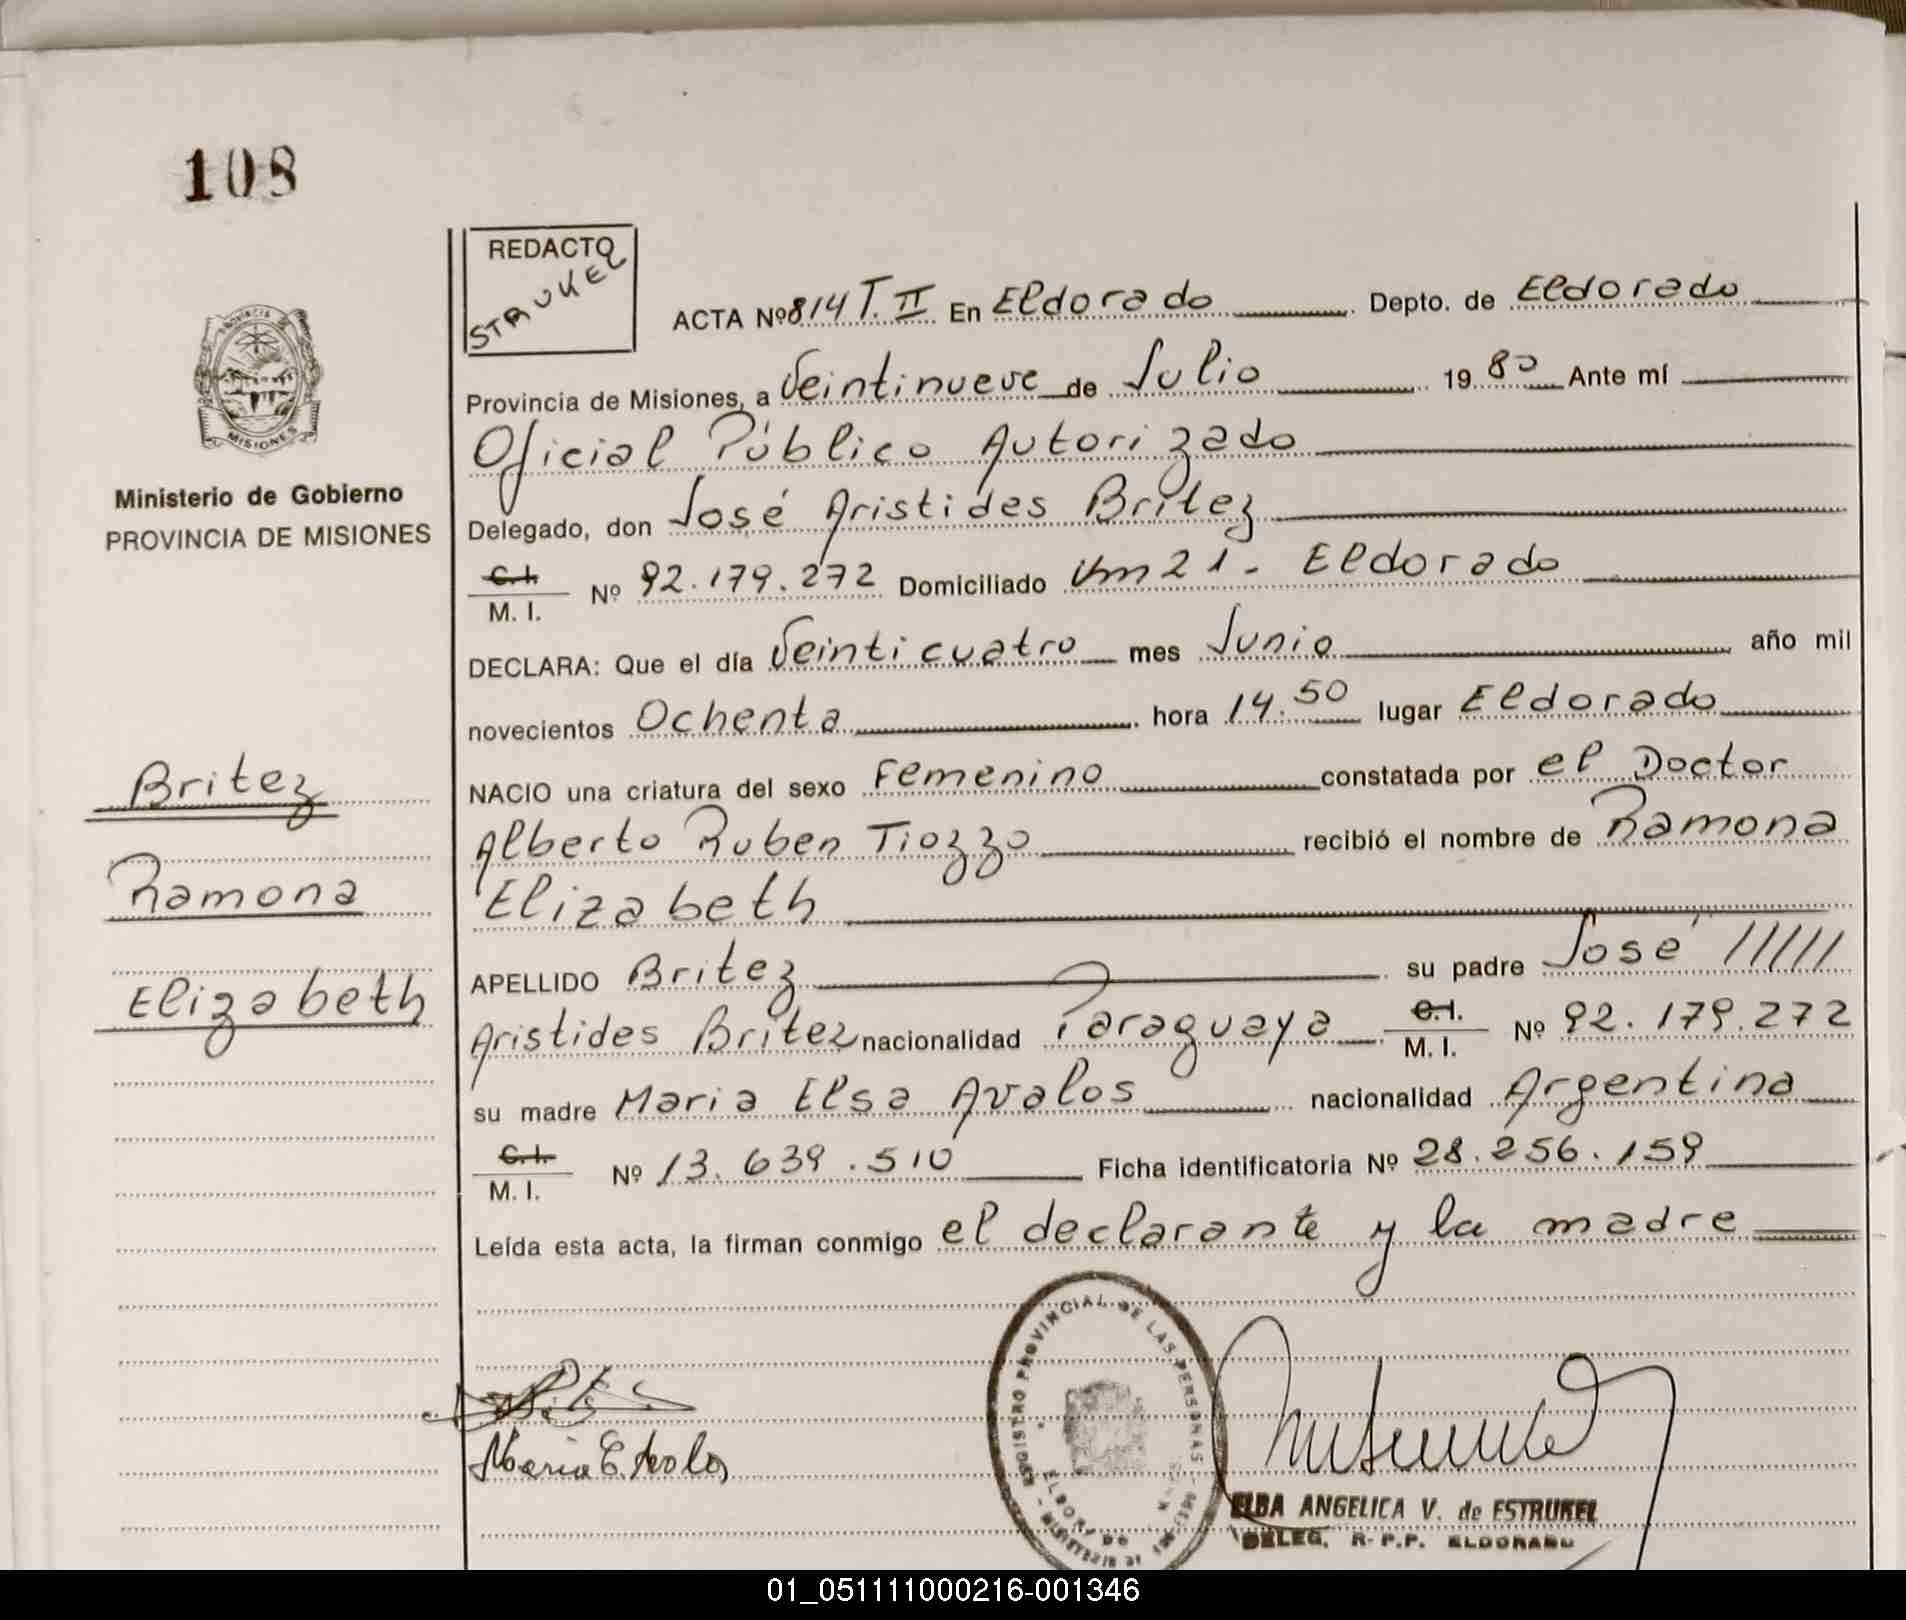 108
REDACTO
STRUKEL
ACTA Nº 814 T. II En Eldorado Depto. de Eldorado
Provincia de Misiones, a Veintinueve de Julio 1980 Ante mí
Oficial Público Autorizado
Delegado, don José Aristides Britez
C.I. M. I. Nº 92.179.272 Domiciliado Km 21 - Eldorado
DECLARA: Que el día Veinticuatro mes Junio año mil
novecientos Ochenta hora 14.50 lugar Eldorado
NACIO una criatura del sexo Femenino constatada por el Doctor
Alberto Ruben Tiozzo recibió el nombre de Ramona
Elizabeth
APELLIDO Britez su padre José /////
Aristides Britez nacionalidad Paraguaya C.I. M. I. Nº 92.179.272
su madre Maria Elsa Avalos nacionalidad Argentina
C.I. M. I. Nº 13.639.510 Ficha identificatoria Nº 28.256.159
Leída esta acta, la firman conmigo el declarante y la madre
PROVINCIA DE
MISIONES
Ministerio de Gobierno
PROVINCIA DE MISIONES
Britez
Ramona
Elizabeth
Maria E. Avalos
REGISTRO PROVINCIAL DE LAS PERSONAS
ELDORADO
ELBA ANGELICA V. de ESTRUKEL
DELEG. R. P.P. ELDORADO
01_051111000216-001346